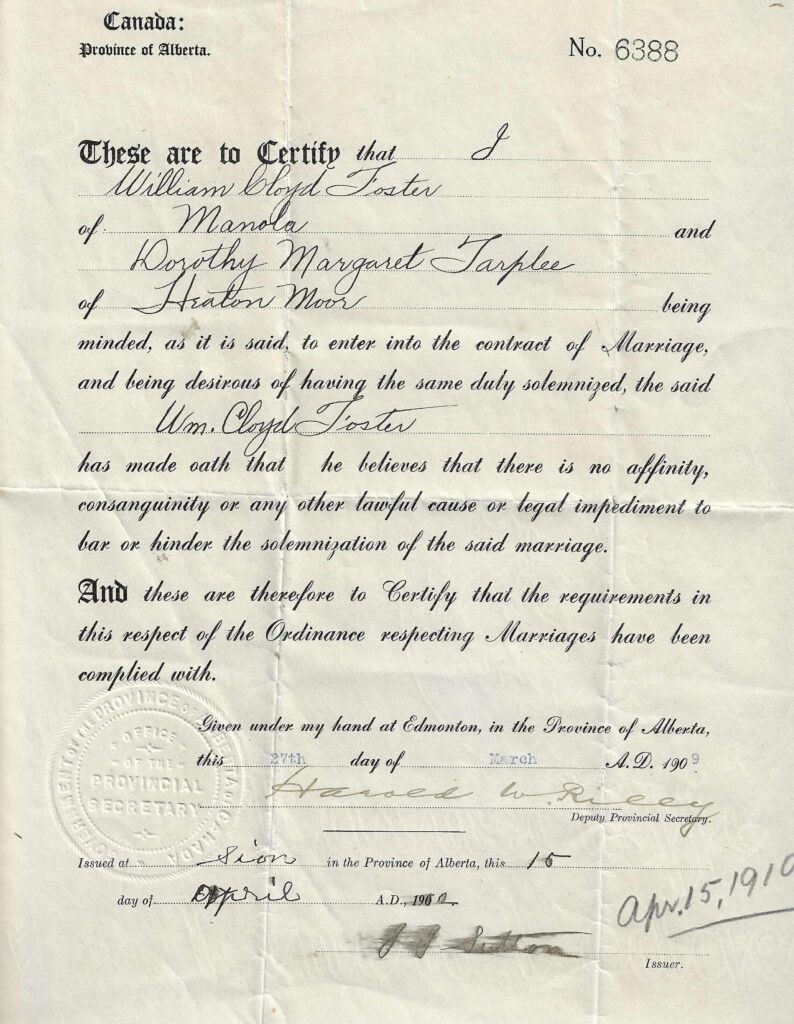 Canada:
Province of Alberta.
No. 6388
These are to Certify that I
William Cloyd Foster
of Manola and
Dorothy Margaret Tarplee
of Heaton Moor being
minded, as it is said, to enter into the contract of Marriage,
and being desirous of having the same duly solemnized, the said
Wm. Cloyd Foster
has made oath that he believes that there is no affinity,
consanguinity or any other lawful cause or legal impediment to
bar or hinder the solemnization of the said marriage.
And these are therefore to Certify that the requirements in
this respect of the Ordinance respecting Marriages have been
complied with.
Given under my hand at Edmonton, in the Province of Alberta,
this 27th day of March A.D. 1909
Harold W. Riley
Deputy Provincial Secretary.
OFFICE
OF THE
PROVINCIAL
SECRETARY
Issued at Sion in the Province of Alberta, this 15
day of April A.D., 1910
Apr. 15, 1910
J J Sutton
Issuer.